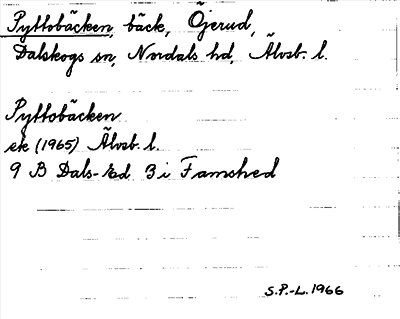 Pyttobäcken, bäck, Öjerud,
Dalskogs sn, Nordals hd, Älvsb. l.
Pyttobäcken
ek (1965) Älvsb. l.
9 B Dals-Ed 3 i Famshed
S.P.-L. 1966